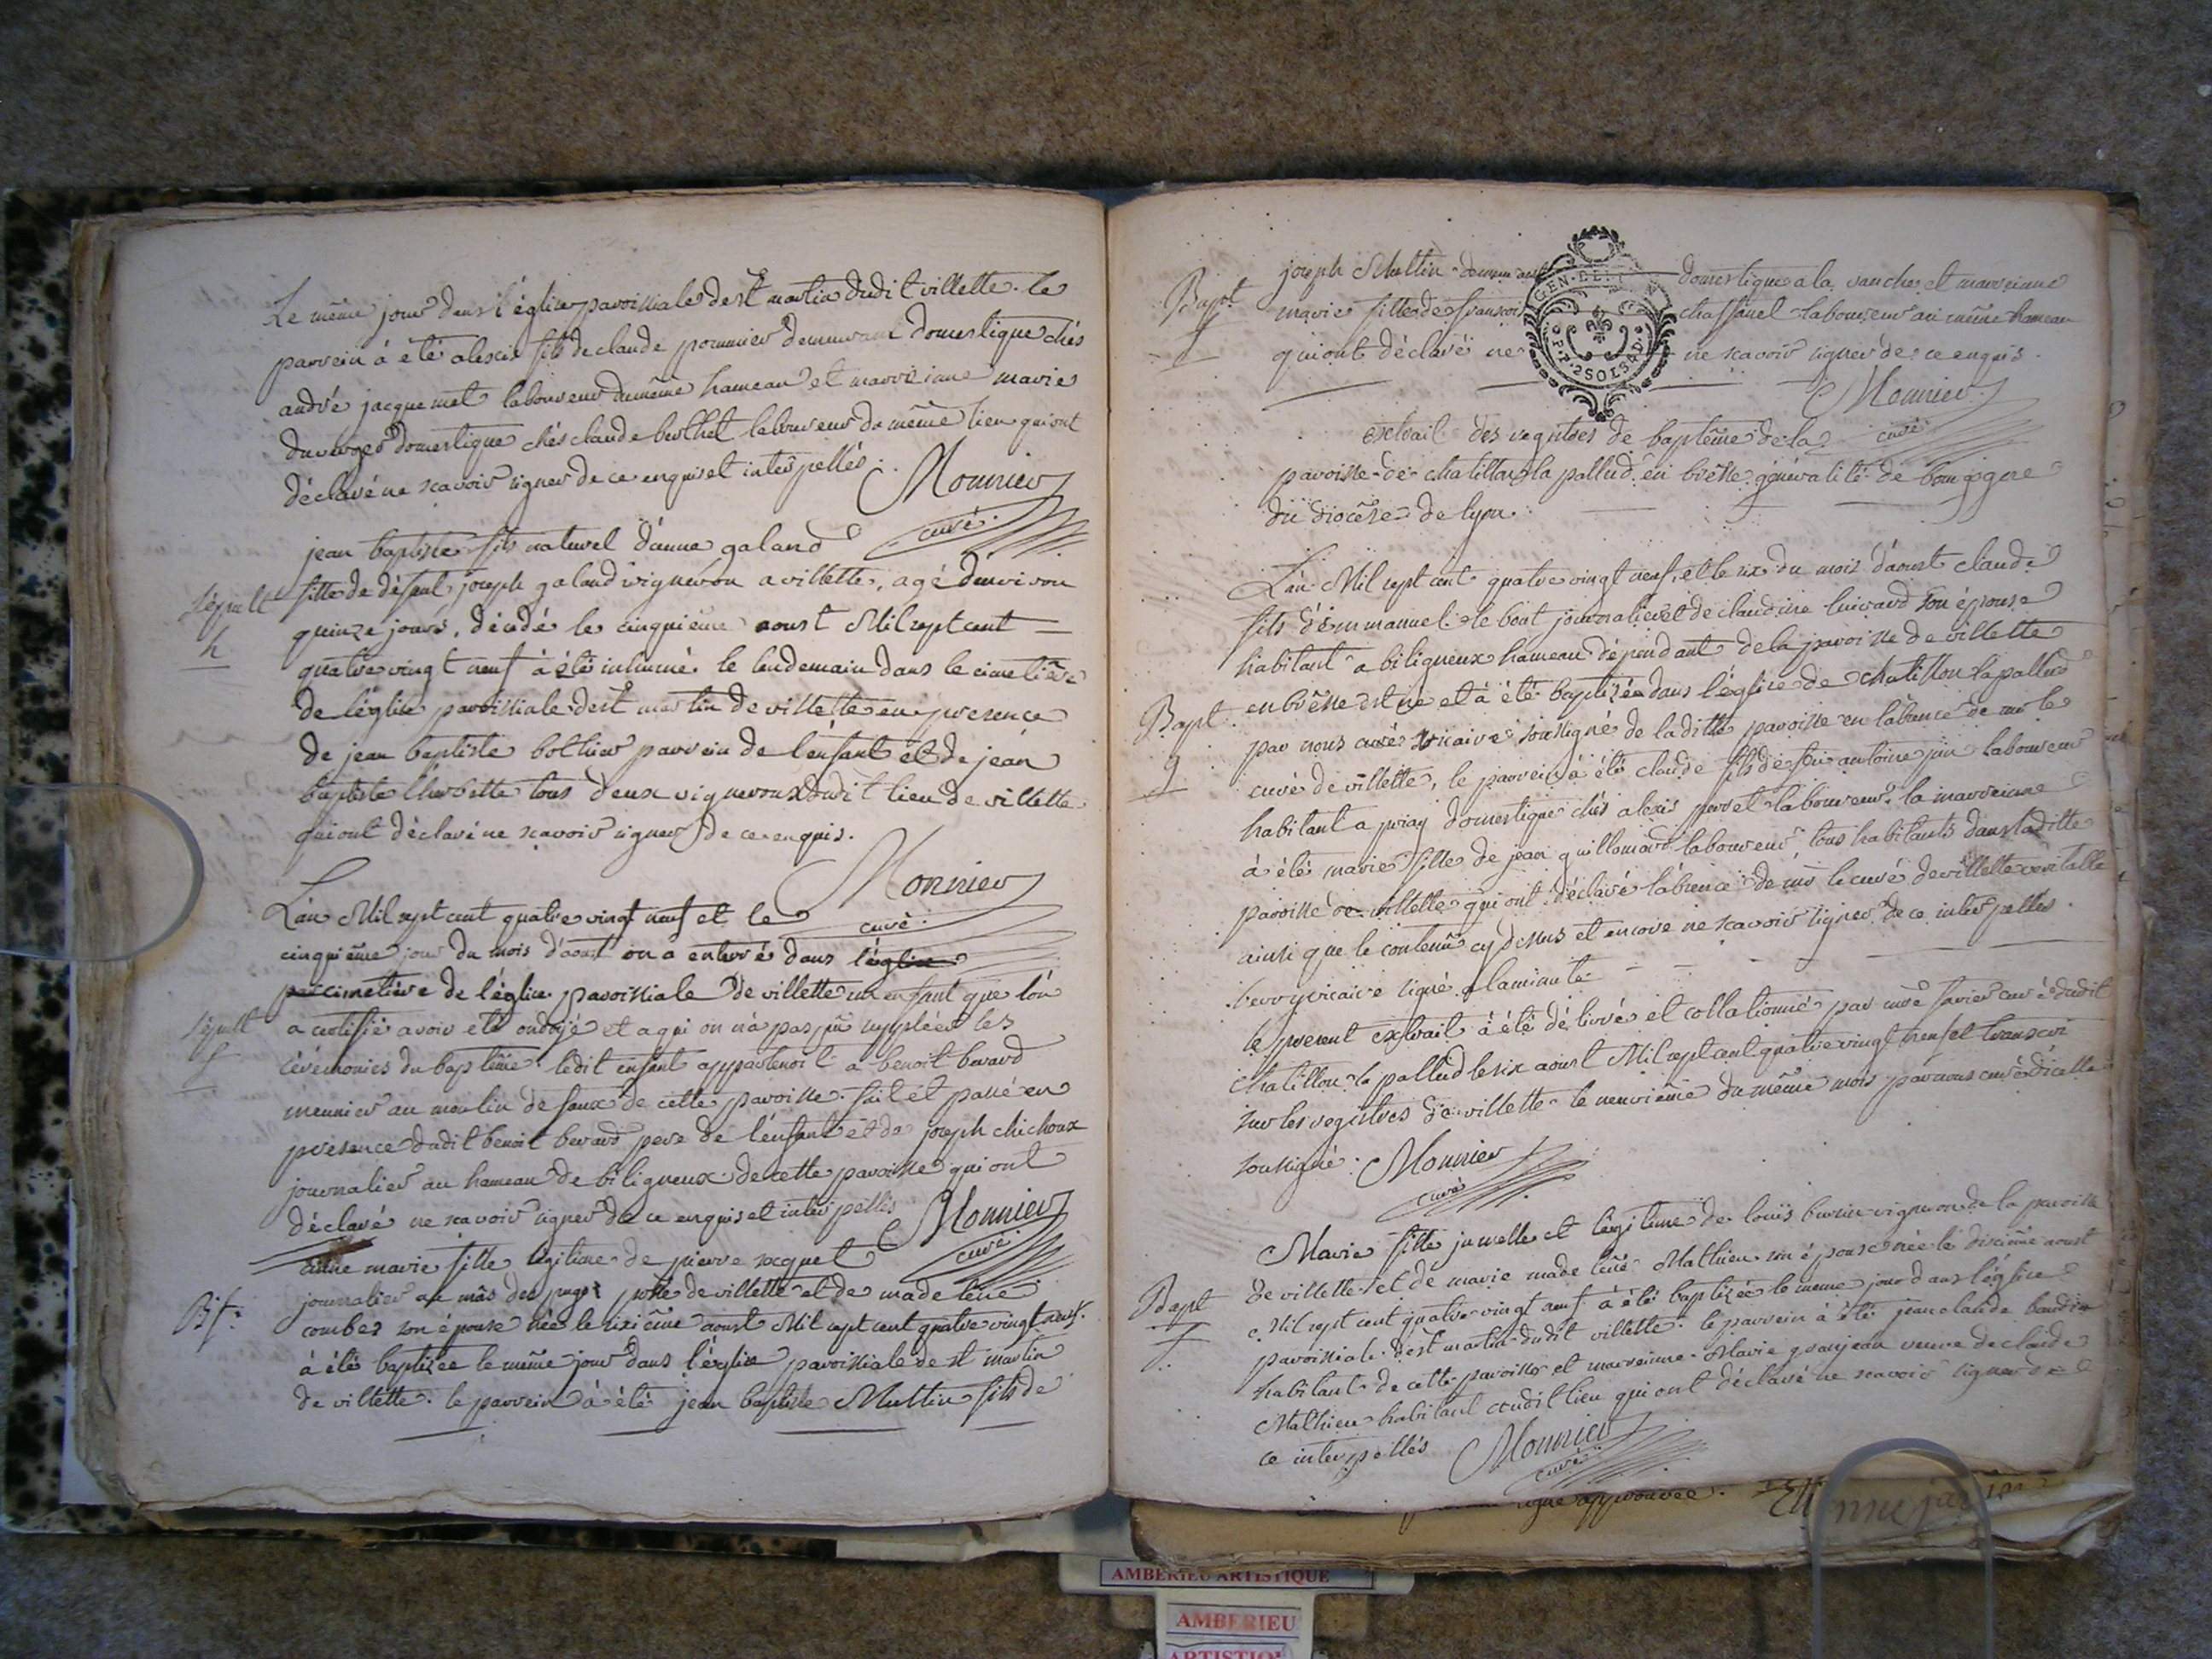 Le même jour dans l'église paroissiale de st martin dudit villette. le
parrein à été alexis fils de claude pommier demeurant domestique chés
andré jacquemet laboureur du même hameau et marreinne marie
domestique chés claude berthet laboureur du même lieu qui ont
déclaré ne scavoir signer de ce enquis et interpellés.
Monnier
curé.
jean baptiste fils naturel d'anne galand
Sépult
fille de défunt joseph galand vigneron a villette, agé d'environ
quinze jours, décédé le cinquième aoust Mil sept cent
h
quatre vingt neuf à été inhumé le lendemain dans le cimetière
de l'église paroissiale de st martin de villette en presence
de jean baptiste bothier parrein de l'enfant et de jean
baptiste tous deux vignerons dudit lieu de villette
qui ont déclaré ne scavoir signer de ce enquis.
Monnier
curé.
L'an Mil sept cent quatre vingt neuf et le
cinquième jour du mois d'aoust on a enterré dans l'église
cimetière de l'église paroissiale de villette un enfant que l'on
Sépult
a certifié avoir été ondojé et a qui on n'a pas pû suppléer les
cérémonies du baptême. ledit enfant appartenoit a benoit berard
meunier au moulin de faux de cette paroisse. fait et passé en
présence dudit benoit berard pere de l'enfant et de joseph chichoux
journalier au hameau de biligneux de cette paroisse qui ont
déclaré ne scavoir signer de ce enquis et interpellés
Monnier
curé.
anne marie fille légitime de pierre
journalier au mâs des psse de villette et de madeleine
combes son épouse née le sixième aoust Mil sept cent quatre vingt neuf.
à été baptizée le même jour dans l'église paroissiale de st martin
de villette. le parrein à été jean baptiste Muttin fils de
Bapt
f
joseph Muttin domestique a la et marreinne
marie fille de françois chassanel laboureur au même hameau
qui ont déclaré ne ne scavoir signer de ce enquis.
GEN. DE
P.P. 2 SOLS 4 D
Monnier
curé
extrait des registres de baptême de la
paroisse de chatillon la pallud en bresse généralité de bourgogne
du diocêse de lyon.
L'an Mil sept cent quatre vingt neuf, et le six du mois d'aoust claude
fils d'emmanuel le bont journalier et de claudine son épouse
habitant a biligneux hameau dépendant de la paroisse de villette
Bapt.
en bresse est né et à été baptizé dans l'église de chatillon la pallud
g
par nous vicaire soussigné de laditte paroisse en l'absence de mr le
curé de villette, le parrein à été claude fils de feu antoine laboureur
habitant a priay domestique chés alexis perret laboureur. la marreinne
à été marie fille de jean guillomard laboureur tous habitants dans laditte
paroisse de villette qui ont déclaré l'absence de mr le curé de villette véritable
ainsi que le contenu cy dessus et encore ne scavoir signer de ce interpellés.
vicaire signé
le present extrait à été délivré et collationné par curé dudit
chatillon la pallud le six aoust Mil sept cent quatre vingt neuf et transcri
sur les registres de villette le neuvième du même mois par nous curé d'icelle
soussigné.
Monnier
curé
Marie fille jumelle et légitime de louis vigneron de la paroisse
Bapt
de villette et de marie madeleine Mathieu son épouse née le dixième aoust
f
Mil sept cent quatre vingt neuf à été baptizée le meme jour dans l'église
paroissiale de st martin dudit villette. le parrein à été jean claude
habitant de cette paroisse et marreinne Marie granjean veuve de claude
Mathieu habitant audit lieu qui ont déclaré ne scavoir signer de
ce interpellés
Monnier
curé
approuvée.
AMBERIEU ARTISTIQUE
AMBERIEU
ARTISTIQUE